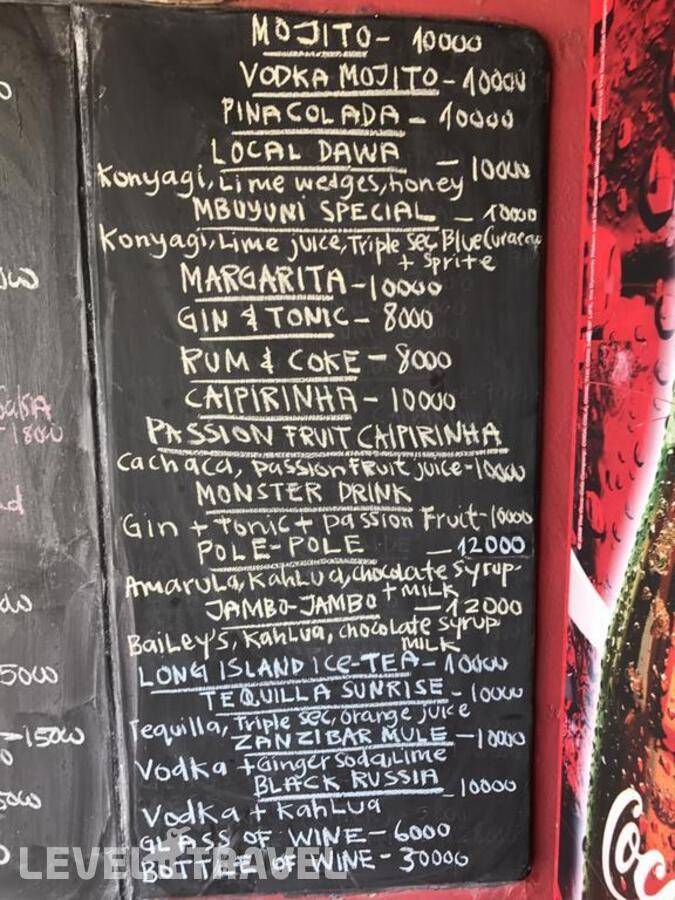 MOJITO - 10000
VODKA MOJITO - 10000
PINA COLADA - 10000
LOCAL DAWA - 10000
Konyagi, Lime wedges, honey
MBUYUNI SPECIAL - 10000
Konyagi, Lime juice, Triple Sec, Blue Curacao
+ Sprite
MARGARITA - 10000
GIN & TONIC - 8000
RUM & COKE - 8000
CAIPIRINHA - 10000
PASSION FRUIT CAIPIRINHA
Cachaca, passion Fruit juice - 10000
MONSTER DRINK
Gin + Tonic + passion Fruit - 10000
POLE-POLE - 12000
Amarula, Kahlua, chocolate syrup
+ MILK
JAMBO-JAMBO - 12000
Bailey's, Kahlua, chocolate syrup
MILK
LONG ISLAND ICE-TEA - 10000
TEQUILLA SUNRISE - 10000
Tequilla, Triple sec, orange juice
ZANZIBAR MULE - 10000
Vodka + Ginger Soda, Lime
BLACK RUSSIA - 10000
Vodka + Kahlua
GLASS OF WINE - 6000
BOTTLE OF WINE - 30000
1800
5000
15000
LEVEL TRAVEL
Coc